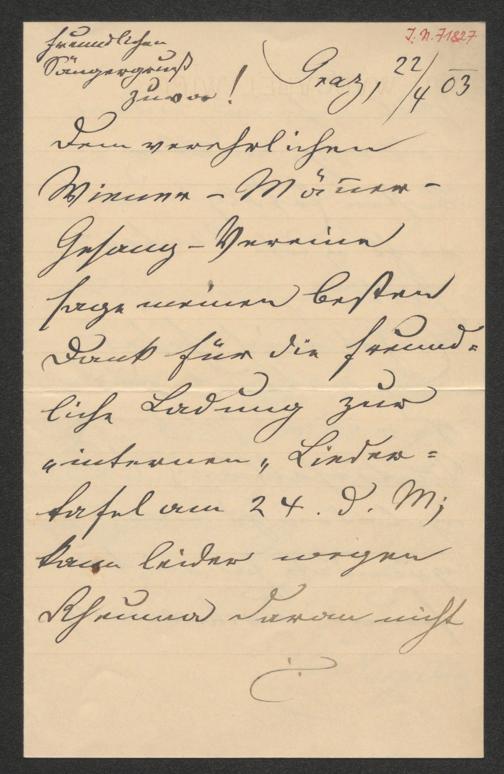 J. N. 71827
freundlichen
Sängergruß
zuvor!
Graz, 22/4 03
Dem verehrlichen
Wiener-Männer-
Gesang-Vereine
sage meinen besten
Dank für die freund=
liche Ladung zur
„internen„ Lieder=
tafel am 24. d. M;
kann leider wegen
Rheuma daran nicht